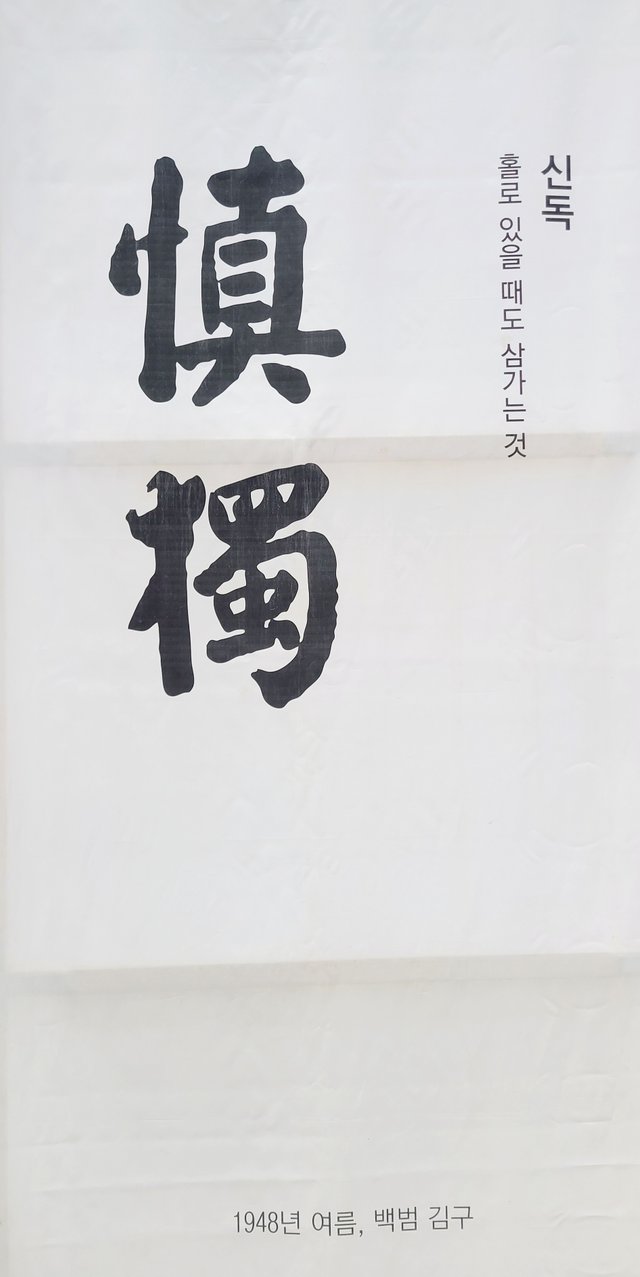 신독
홀로 있을 때도 삼가는 것
慎獨
1948년 여름, 백범 김구